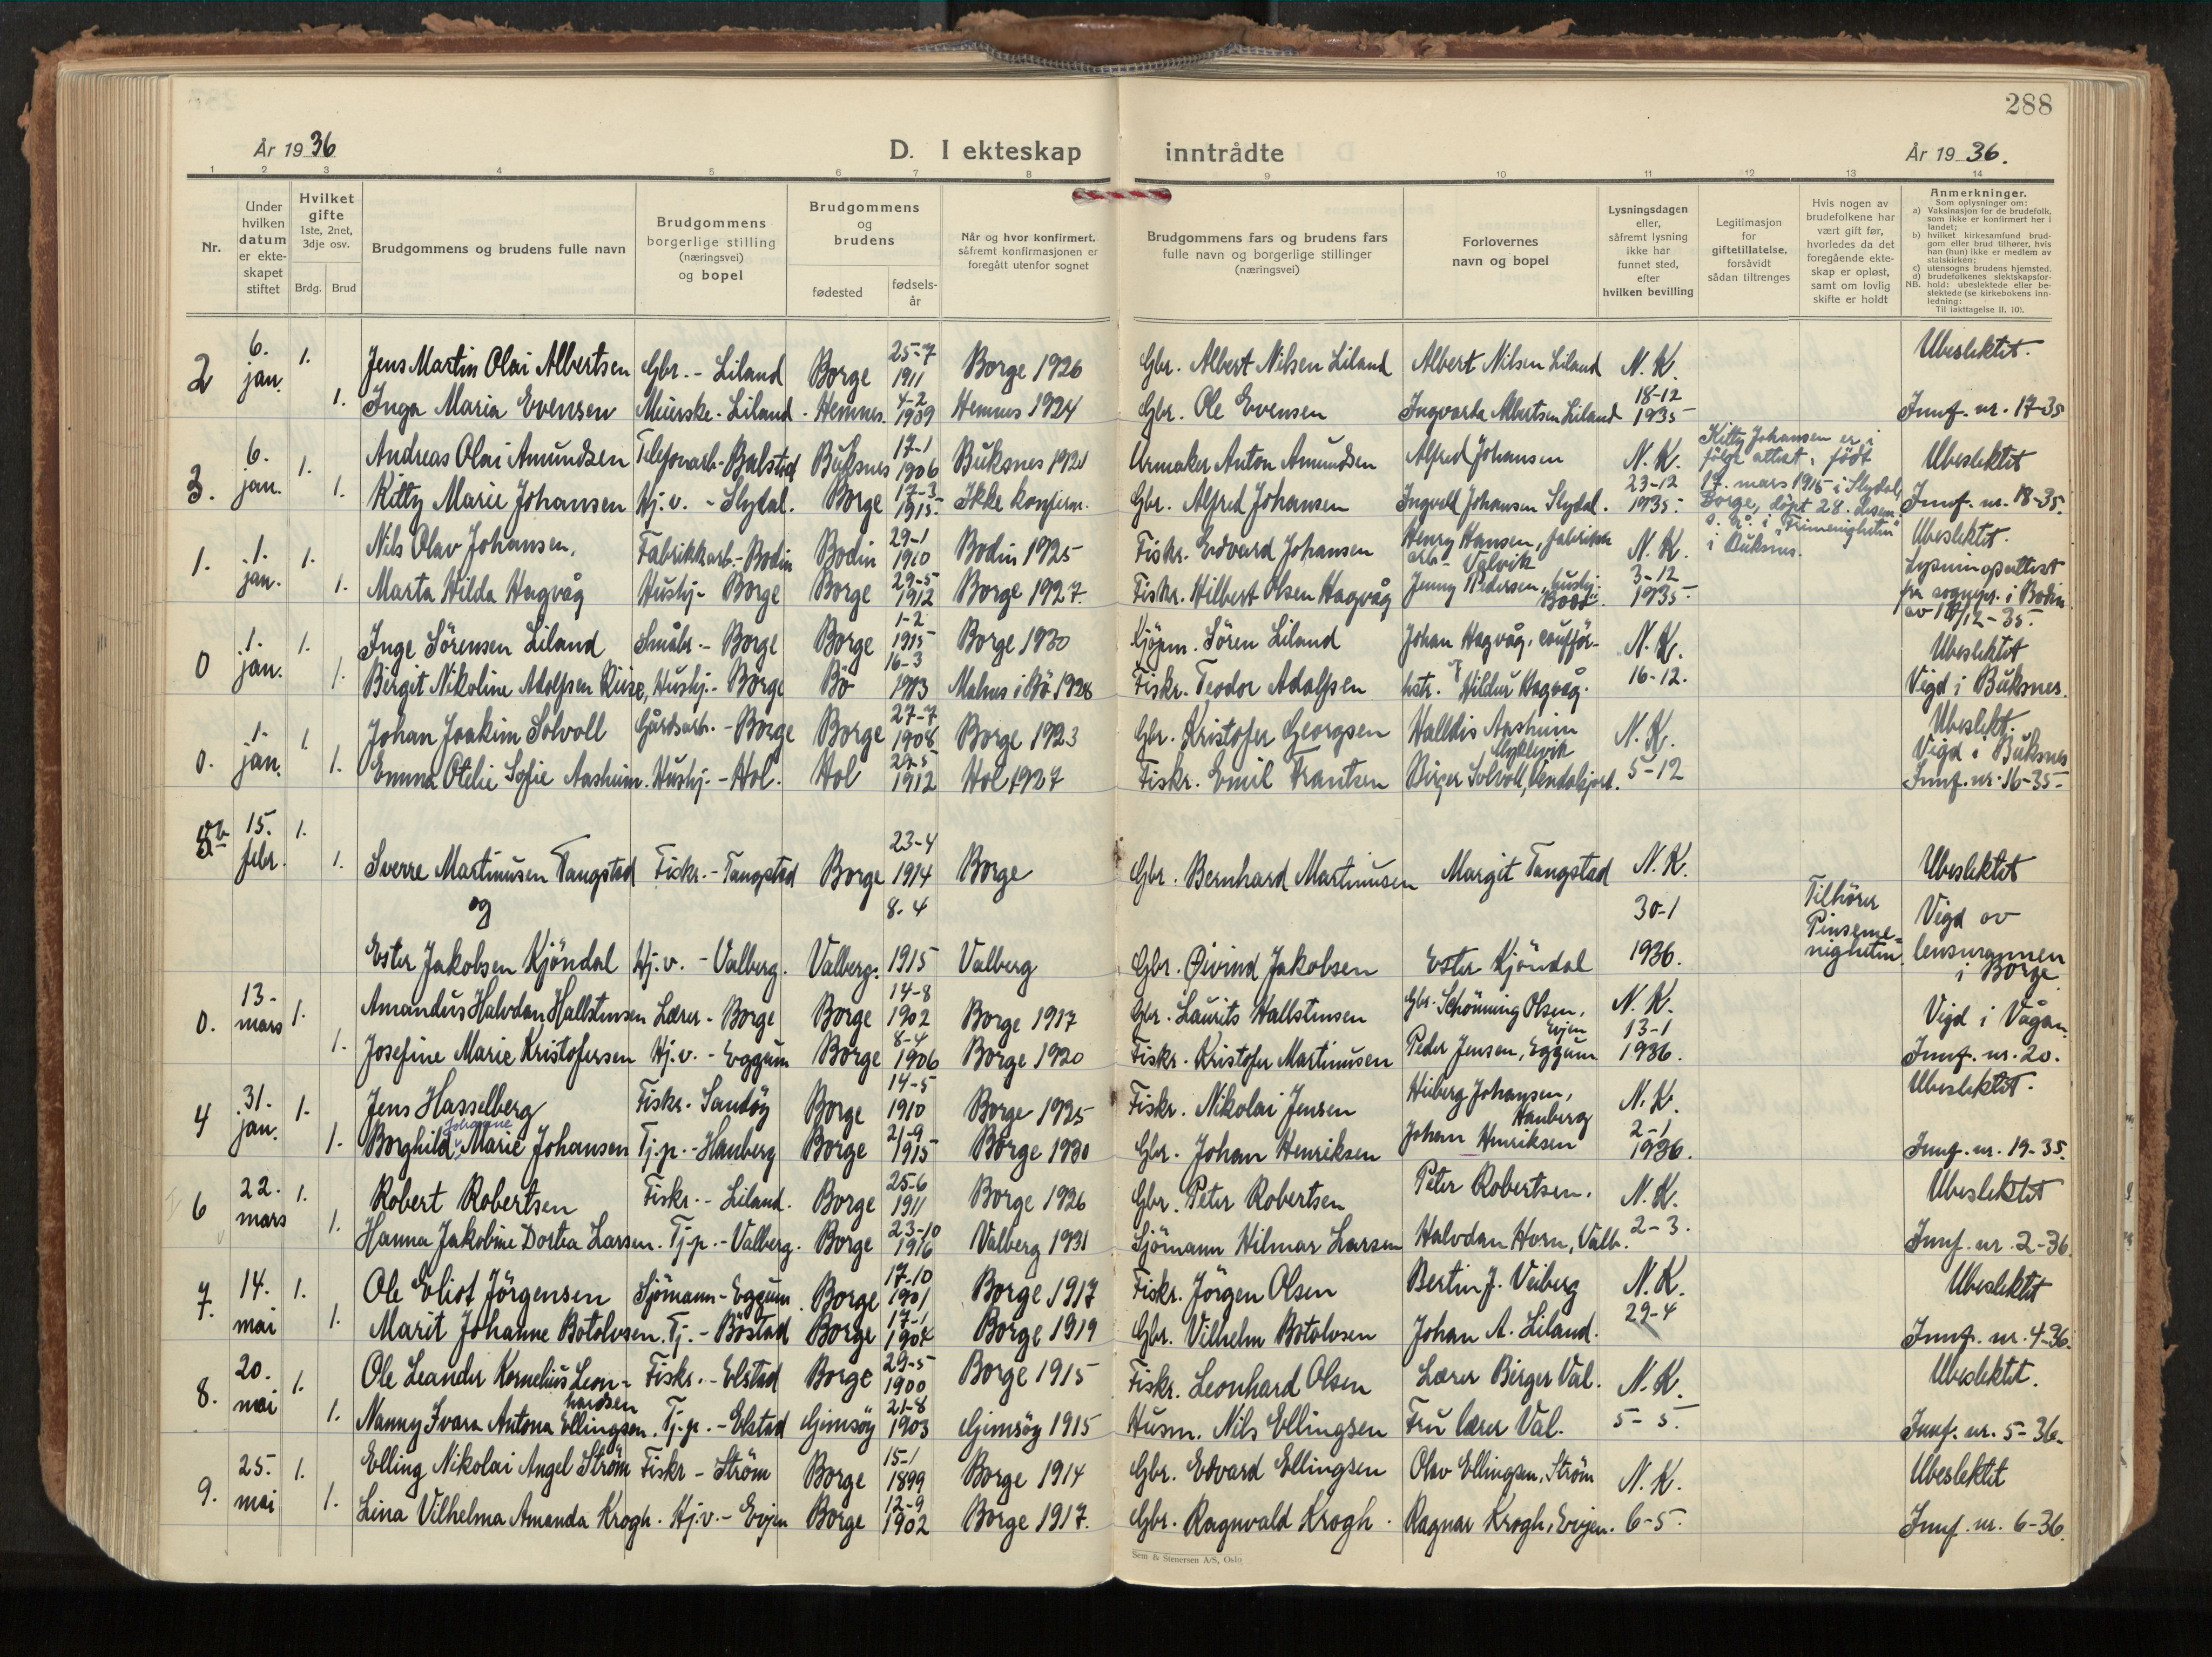 288
År 1936
D. I ekteskap inntrådte
År 1936.
1 2 3 4 5 6 7 8 9 10 11 12 13 14
Nr.
Under
hvilken
datum
er ekte-
skapet
stiftet
Hvilket
gifte
1ste, 2net,
3dje osv.
Brdg. Brud
Brudgommens og brudens fulle navn
Brudgommens
borgerlige stilling
(næringsvei)
og bopel
Brudgommens
og
brudens
fødested
fødsels-
år
Når og hvor konfirmert,
såfremt konfirmasjonen er
foregått utenfor sognet
Brudgommens fars og brudens fars
fulle navn og borgerlige stillinger
(næringsvei)
Forlovernes
navn og bopel
Lysningsdagen
eller,
såfremt lysning
ikke har
funnet sted,
efter
hvilken bevilling
Legitimasjon
for
giftetillatelse,
forsåvidt
sådan tiltrenges
Hvis nogen av
brudefolkene har
vært gift før,
hvorledes da det
foregående ekte-
skap er opløst,
samt om lovlig
skifte er holdt
Anmerkninger.
Som oplysninger om:
a) Vaksinasjon for de brudefolk,
som ikke er konfirmert her i
landet;
b) hvilket kirkesamfund brud-
gom eller brud tilhører, hvis
han (hun) ikke er medlem av
statskirken;
c) utensogns brudens hjemsted.
d) brudefolkenes slektskapsfor-
NB. hold: ubeslektede eller be-
slektede (se kirkebokens inn-
ledning:
Til iakttagelse II, 10).
2 6. jan. 1. Jens Martin Olai Albertsen Gbr. - Liland Borge 25-7 1911 Borge 1926 Gbr. Albert Nilsen Liland Albert Nilsen Liland N. K. Ubeslektet.
1. Inga Maria Evensen Meierske - Liland - Hemnes. 4-2 1909 Hemnes 1924 Gbr. Ole Evensen Ingvarda Albertsen Liland 18-12 1935 Innf. nr. 17-35
3. 6. jan. 1. Andreas Olai Amundsen Telefonarb. - Balstad Buksnes 17-1 1906 Buksnes 1921 Urmaker Anton Amundsen Alfred Johansen N. K. Ubeslektet
1. Kitty Marie Johansen Hj. v. - Slydal. Borge 17-3 1915 Ikke konfirm. Gbr. Alfred Johansen Ingvald Johansen Slydal. 23-12 1935. Innf. nr. 18-35.
Kitty Johansen er i
følge attest, født
17. mars 1915 i Slydal,
Borge, døpt 28. desem.
s. å. i "Frimenigheten"
i Buksnes.
1. 1. jan. 1. Nils Olav Johansen. Fabrikkarb. - Bodin Bodin 29-1 1910 Bodin 1925 Fiskr. Edvard Johansen Henry Hansen, fabrikk arb. Valvik N. K. Ubeslektet.
1. Marta Hilda Hagvåg Hushj. - Borge Borge 29-5 1912 Borge 1927. Fiskr. Hilbert Olsen Hagvåg Jenny Pedersen, hushj. Bodö. 3-12 1935.
Lysningsattest
fra sognepr. i Bodin
0 1. jan. 1. Inge Sörensen Liland Småbr. - Borge Borge 1-2 1915 Borge 1930 Kjöpm. Sören Liland Johan Hagvåg, sauffjör- N. K. Ubeslektet
1. Birgit Nikoline Adolfsen Riise, Hushj. - Borge Bö 16-3 1913 Malnes i Bö 1928 Fiskr. Teodor Adolfsen hstr. Hildur Hagvåg. 16-12. Vigd i Buksnes.
0. 1. jan. 1. Johan Joakim Solvoll Gårdsarb. - Borge Borge 27-7 1908 Borge 1923 Gbr. Kristofer Georgsen Halldis Aasheim N. K. Ubeslekt.
Vigd i Buksnes
1. Emma Otelie Sofie Aasheim. Hushj. - Hol. Hol 29-5 1912 Hol 1927 Fiskr. Emil Frantsen Birger Solvoll, 5-12 Innf. nr. 16-35
5. 15. febr. 1. 1. Sverre Martinusen Tangstad Fiskr. - Tangstad Borge 23-4 1914 Borge Gbr. Bernhard Martinusen Margit Tangstad N. K. Ubeslektet
og
Ester Jakobsen Kjöndal Hj. v. - Valberg. Valberg. 8-4 1915 Valberg Gbr. Øivind Jakobsen Ester Kjöndal 30-1 1936.
Tilhører
Pinseme-
nigheten.
Vigd av
lensmannen
i Borge
0. 13. mars 1. Amandus Halvdan Hallstensen Lærer - Borge Borge 14-8 1902 Borge 1917 Gbr. Laurits Hallstensen Gbr. Schönning Olsen, Evjen N. K. Vigd i Vågan
1. Josefine Marie Kristofersen Hj. v. - Eggum Borge 8-4 1906 Borge 1920 Fiskr. Kristofer Martinusen Peder Jensen, Eggum 13-1 1936. Innf. nr. 20.
4 31. jan. 1. Jens Hasselberg Fiskr. Sandöy Borge 14-5 1910 Borge 1925 Fiskr. Nikolai Jensen Heiberg Johansen, Hauberg N. K. Ubeslektet.
1. Borghild Johanne Marie Johansen Tj. p. - Hauberg Borge 21-9 1915 Borge 1930 Gbr. Johan Henriksen Johan Henriksen 2-1 1936. Innf. nr. 19-35.
6 22. mars 1. Robert Robertsen Fiskr. - Liland. Borge 25-6 1911 Borge 1926 Gbr. Peter Robertsen Peter Robertsen. N. K. Ubeslektet
1. Hanna Jakobine Dortea Larsen. Tj. p. - Valberg. Borge 23-10 1916 Valberg 1931 Sjömann Hilmar Larsen Halvdan Horn, Valb. 2-3. Innf. nr. 2-36.
7. 14. mai 1. Ole Eliot Jörgensen Sjömann - Eggum. Borge 17-10 1901 Borge 1917 Fiskr. Jörgen Olsen Bertin J. Veiberg N. K. Ubeslektet
1. Marit Johanne Botolvsen. Tj. - Böstad Borge 17-1 1904 Borge 1919 Gbr. Vilhelm Botolvsen Johan A. Liland. 29-4 Innf. nr. 4-36.
8. 20. mai 1. Ole Leander Kornelius Leon-
hardsen Fiskr. - Elstad Borge 29-5 1900 Borge 1915 Fiskr. Leonhard Olsen Lærer Birger Val. N. K. Ubeslektet.
1. Nanny Ivara Antona Ellingsen. Tj. p. - Elstad Gimsöy 21-8 1903 Gimsöy 1915 Husm. Nils Ellingsen Fru lærer Val. 5-5. Innf. nr. 5-36.
9. 25. mai 1. Elling Nikolai Angel Ström Fiskr - Ström Borge 15-1 1899 Borge 1914 Gbr. Edvard Ellingsen Olav Ellingsen, Ström N. K. Ubeslektet
1. Lina Vilhelma Amanda Krogh. Hj. v. - Evjen Borge 12-9 1902 Borge 1917. Gbr. Ragnvald Krogh. Ragnar Krogh, Evjen. 6-5. Innf. nr. 6-36.
Sem & Stenersen A/S, Oslo